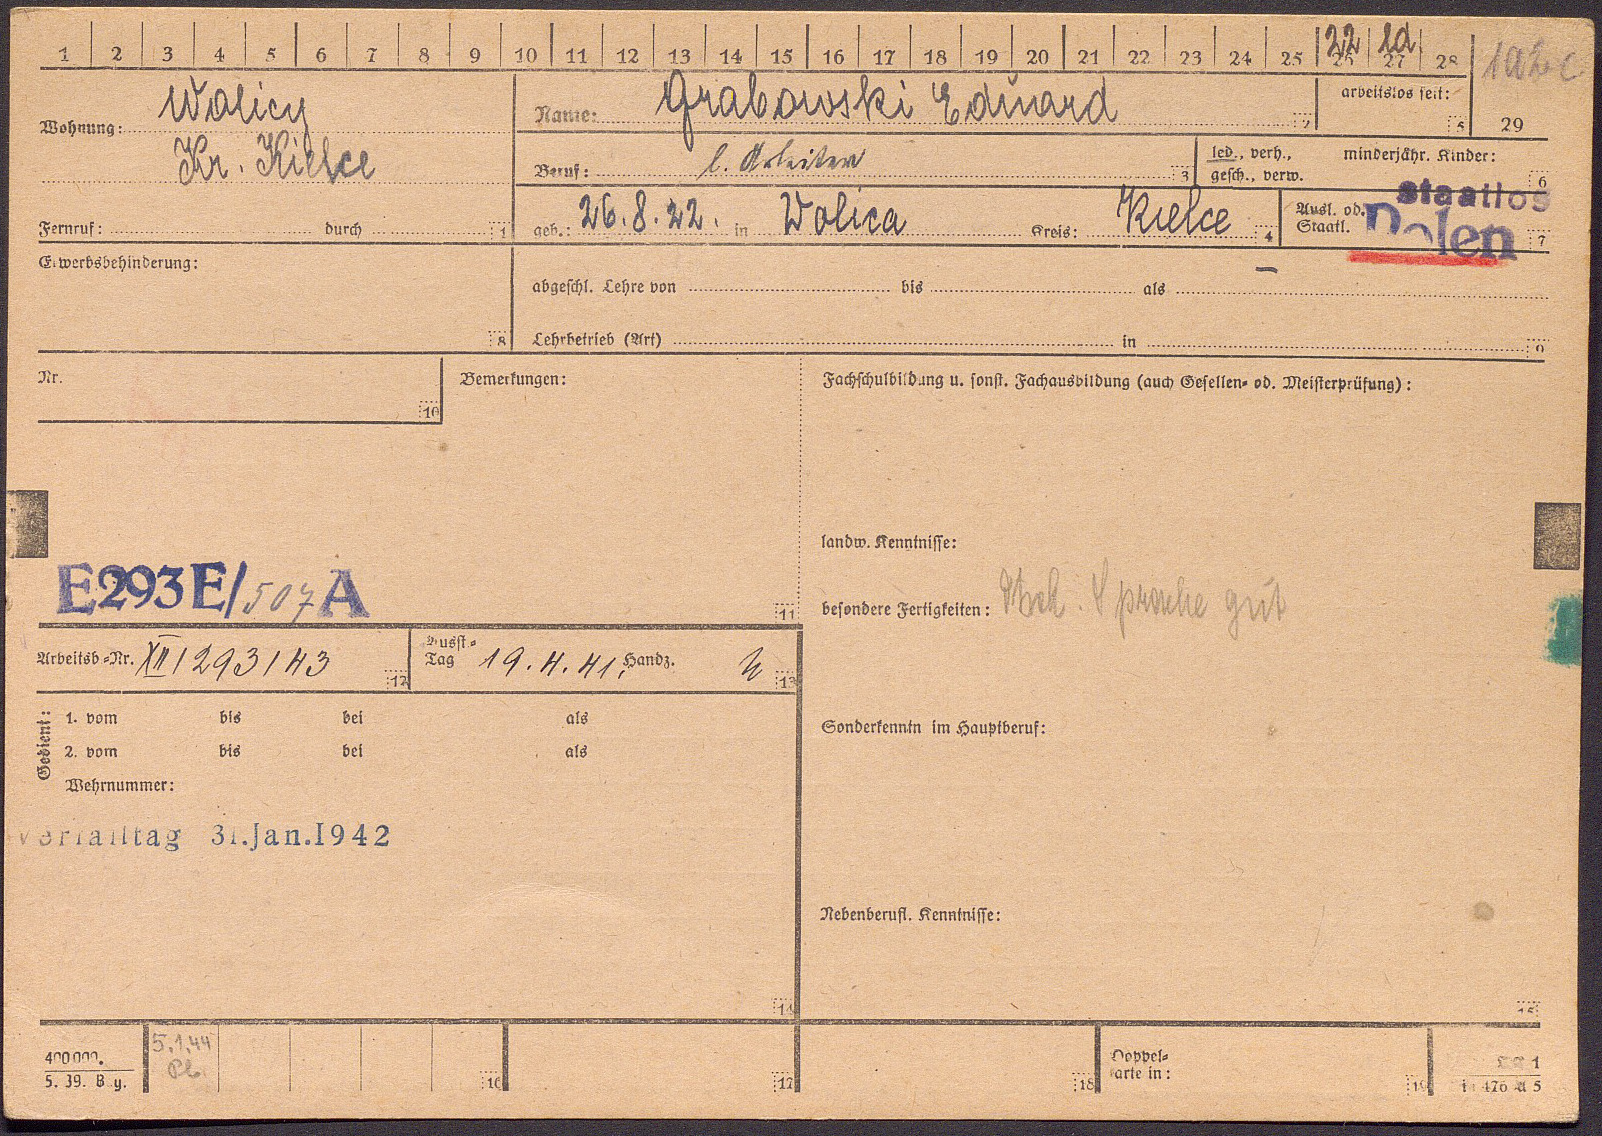 1 2 3 4 5 6 7 8 9 10 11 12 13 14 15 16 17 18 19 20 21 22 23 24 25 26 27 28
22 1a
102 c
Wohnung: Wolicy
Kr. Kielce
Fernruf: durch 1
Name: Grabowski Eduard 2
arbeitslos seit: 5
29
Beruf: l. Arbeiter 3
led., verh., minderjähr. Kinder:
gesch., verw. 6
geb.: 26.8.22. in Wolica Kreis: Kielce 4
Ausl. od. staatlos
Staatl. Polen 7
Erwerbsbehinderung: 8
abgeschl. Lehre von bis als –
Lehrbetrieb (Art) in 9
Nr. 10
Bemerkungen:
Fachschulbildung u. sonst. Fachausbildung (auch Gesellen- od. Meisterprüfung):
landw. Kenntnisse:
E293E/507A
11
besondere Fertigkeiten: Sprache gut
Arbeitsb-Nr. XII/293/43 12
Ausst-
Tag 19.4.41. Handz. 13
Gedient: 1. vom bis bei als
2. vom bis bei als
Wehrnummer:
Sonderkenntn im Hauptberuf:
Verfalltag 31.Jan.1942
Nebenberufl. Kenntnisse:
14
15
400000.
5. 39. B y.
5.1.44
16
17
18
Doppel-
karte in: 19
1
476 5